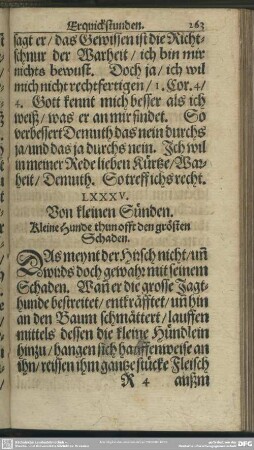 Erquickstunden. 263
sagt er/ das Gewissen ist die Richt-
schnur der Warheit/ ich bin mir
nichts bewust. Doch ja/ ich wil
mich nicht rechtfertigen/ 1. Cor. 4/
4. Gott kennt mich besser als ich
weiß/ was er an mir findet. So
verbessert Demuth das nein durchs
ja/ und das ja durchs nein. Ich wil
in meiner Rede lieben Kürtze/ War-
heit/ Demuth. So treff ichs recht.
LXXXV.
Von kleinen Sünden.
Kleine Hunde thun offt den grösten
Schaden.
DAs meynt der Hirsch nicht/ uñ
wirds doch gewahr mit seinem
Schaden. Wañ er die grosse Jagt-
hunde bestreitet/ entkräfftet/ uñ hin
an den Baum schmättert/ lauffen
mittels dessen die kleine Hündlein
hinzu/ hangen sich hauffenweise an
ihn/ reissen ihm gantze stücke Fleisch
R 4 außm